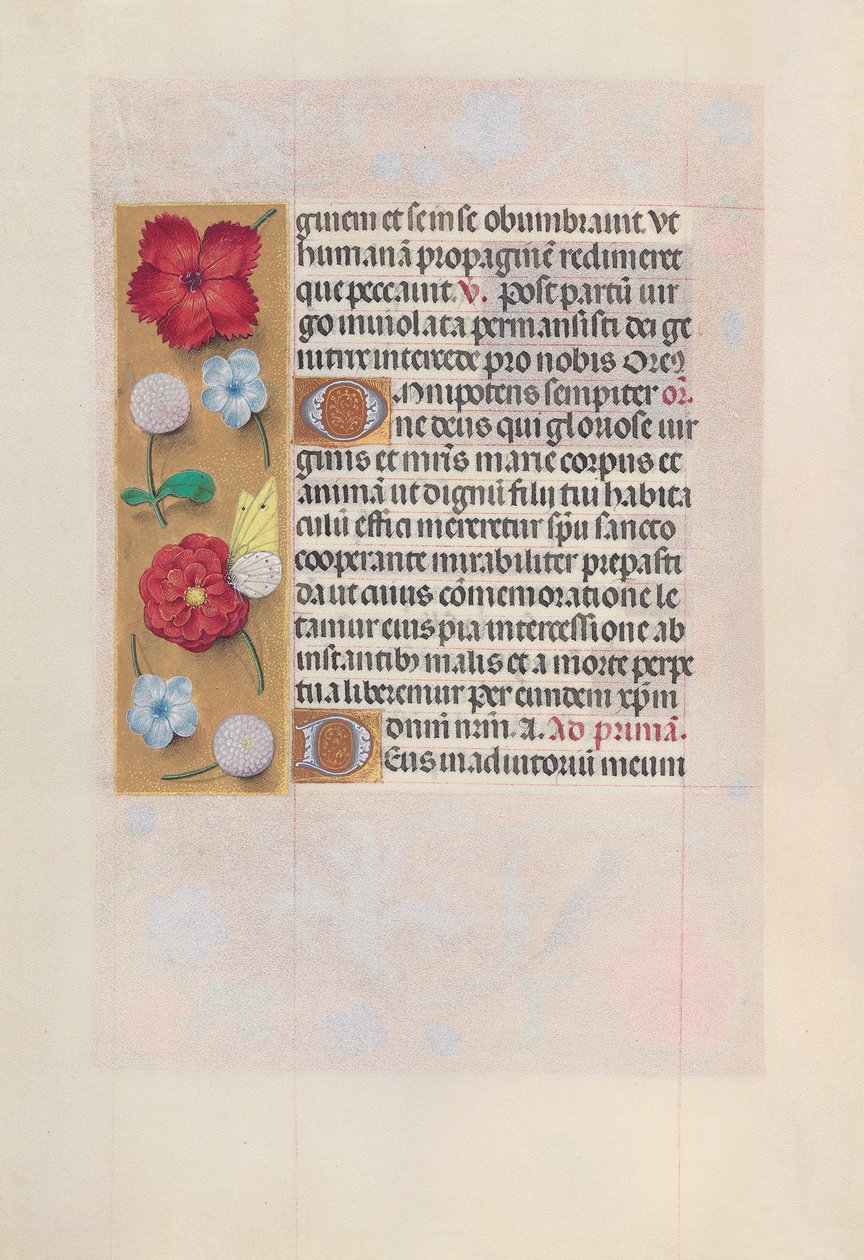 guiem et se in se obumbrauit vt
humanā propaginē redimeret
que peccauit. V̄. Post partū uir
go inuiolata permansisti dei ge
nitrix intercede pro nobis Orem9
Omnipotens sempiter or̄.
ne deus qui gloriose uir
ginis et mr̄is marie corpus et
animā ut dignū filij tui habita
culū effici mereretur sp̄u sancto
cooperante mirabiliter prepasti
da ut cuius cōmemoratione le
tamur eius pia intercessione ab
instantib9 malis et a morte perpe
tua liberemur per eundem xp̄m
donm̄ nrm̄. A. Ad primā.
Deus in adiutoriū meum